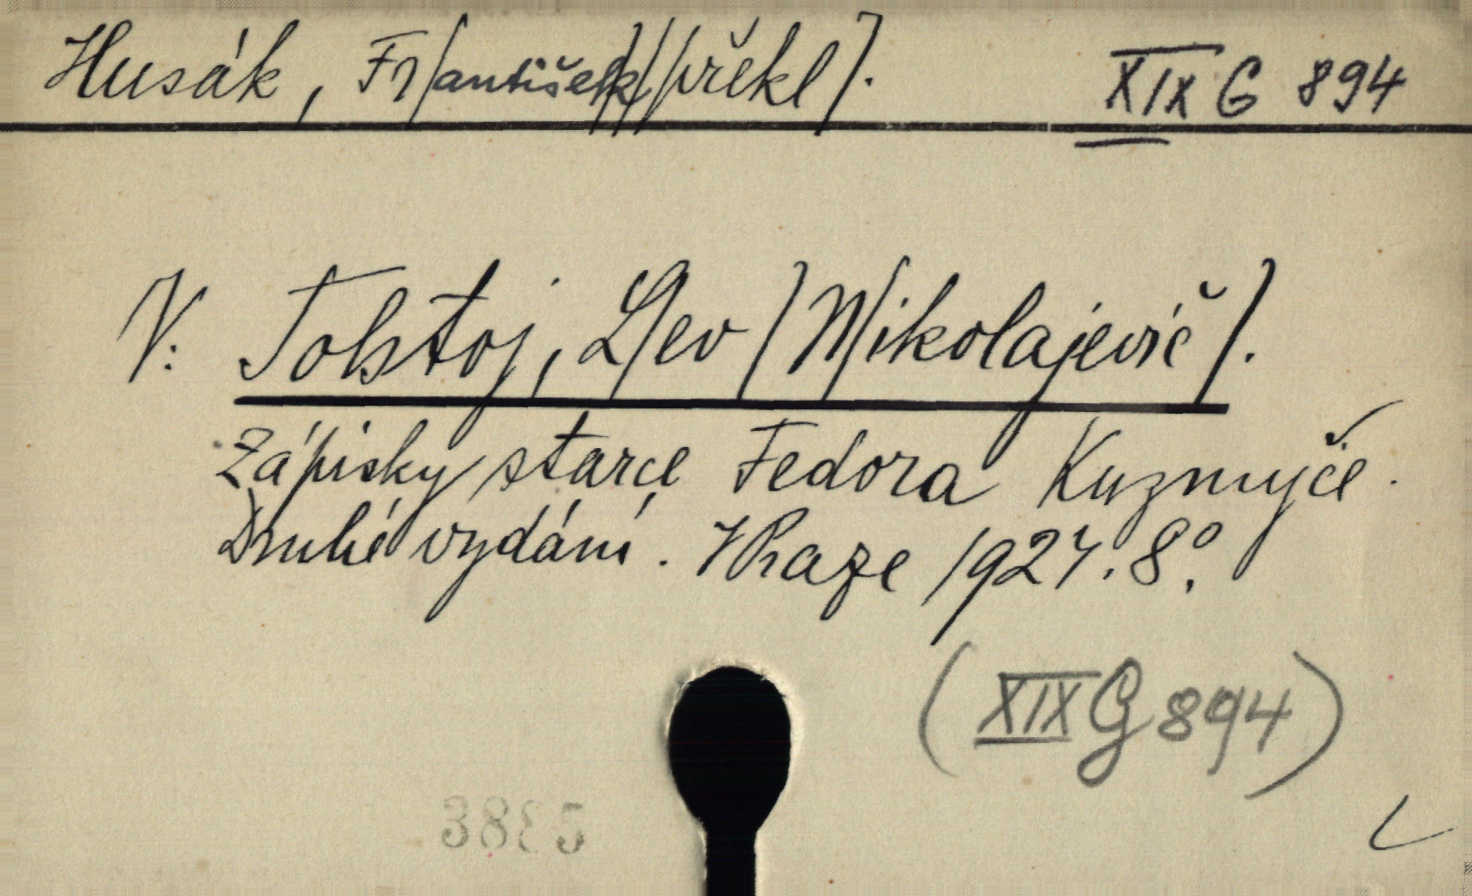 Husák, Fr/antišek//překl/. XIX G 894
V: Tolstoj, L/ev/ N/ikolajevič/.
Zápisky starce Fedora Kuzmyče.
Druhé vydání. V Praze 1927. 8°.
(XIX G 894)